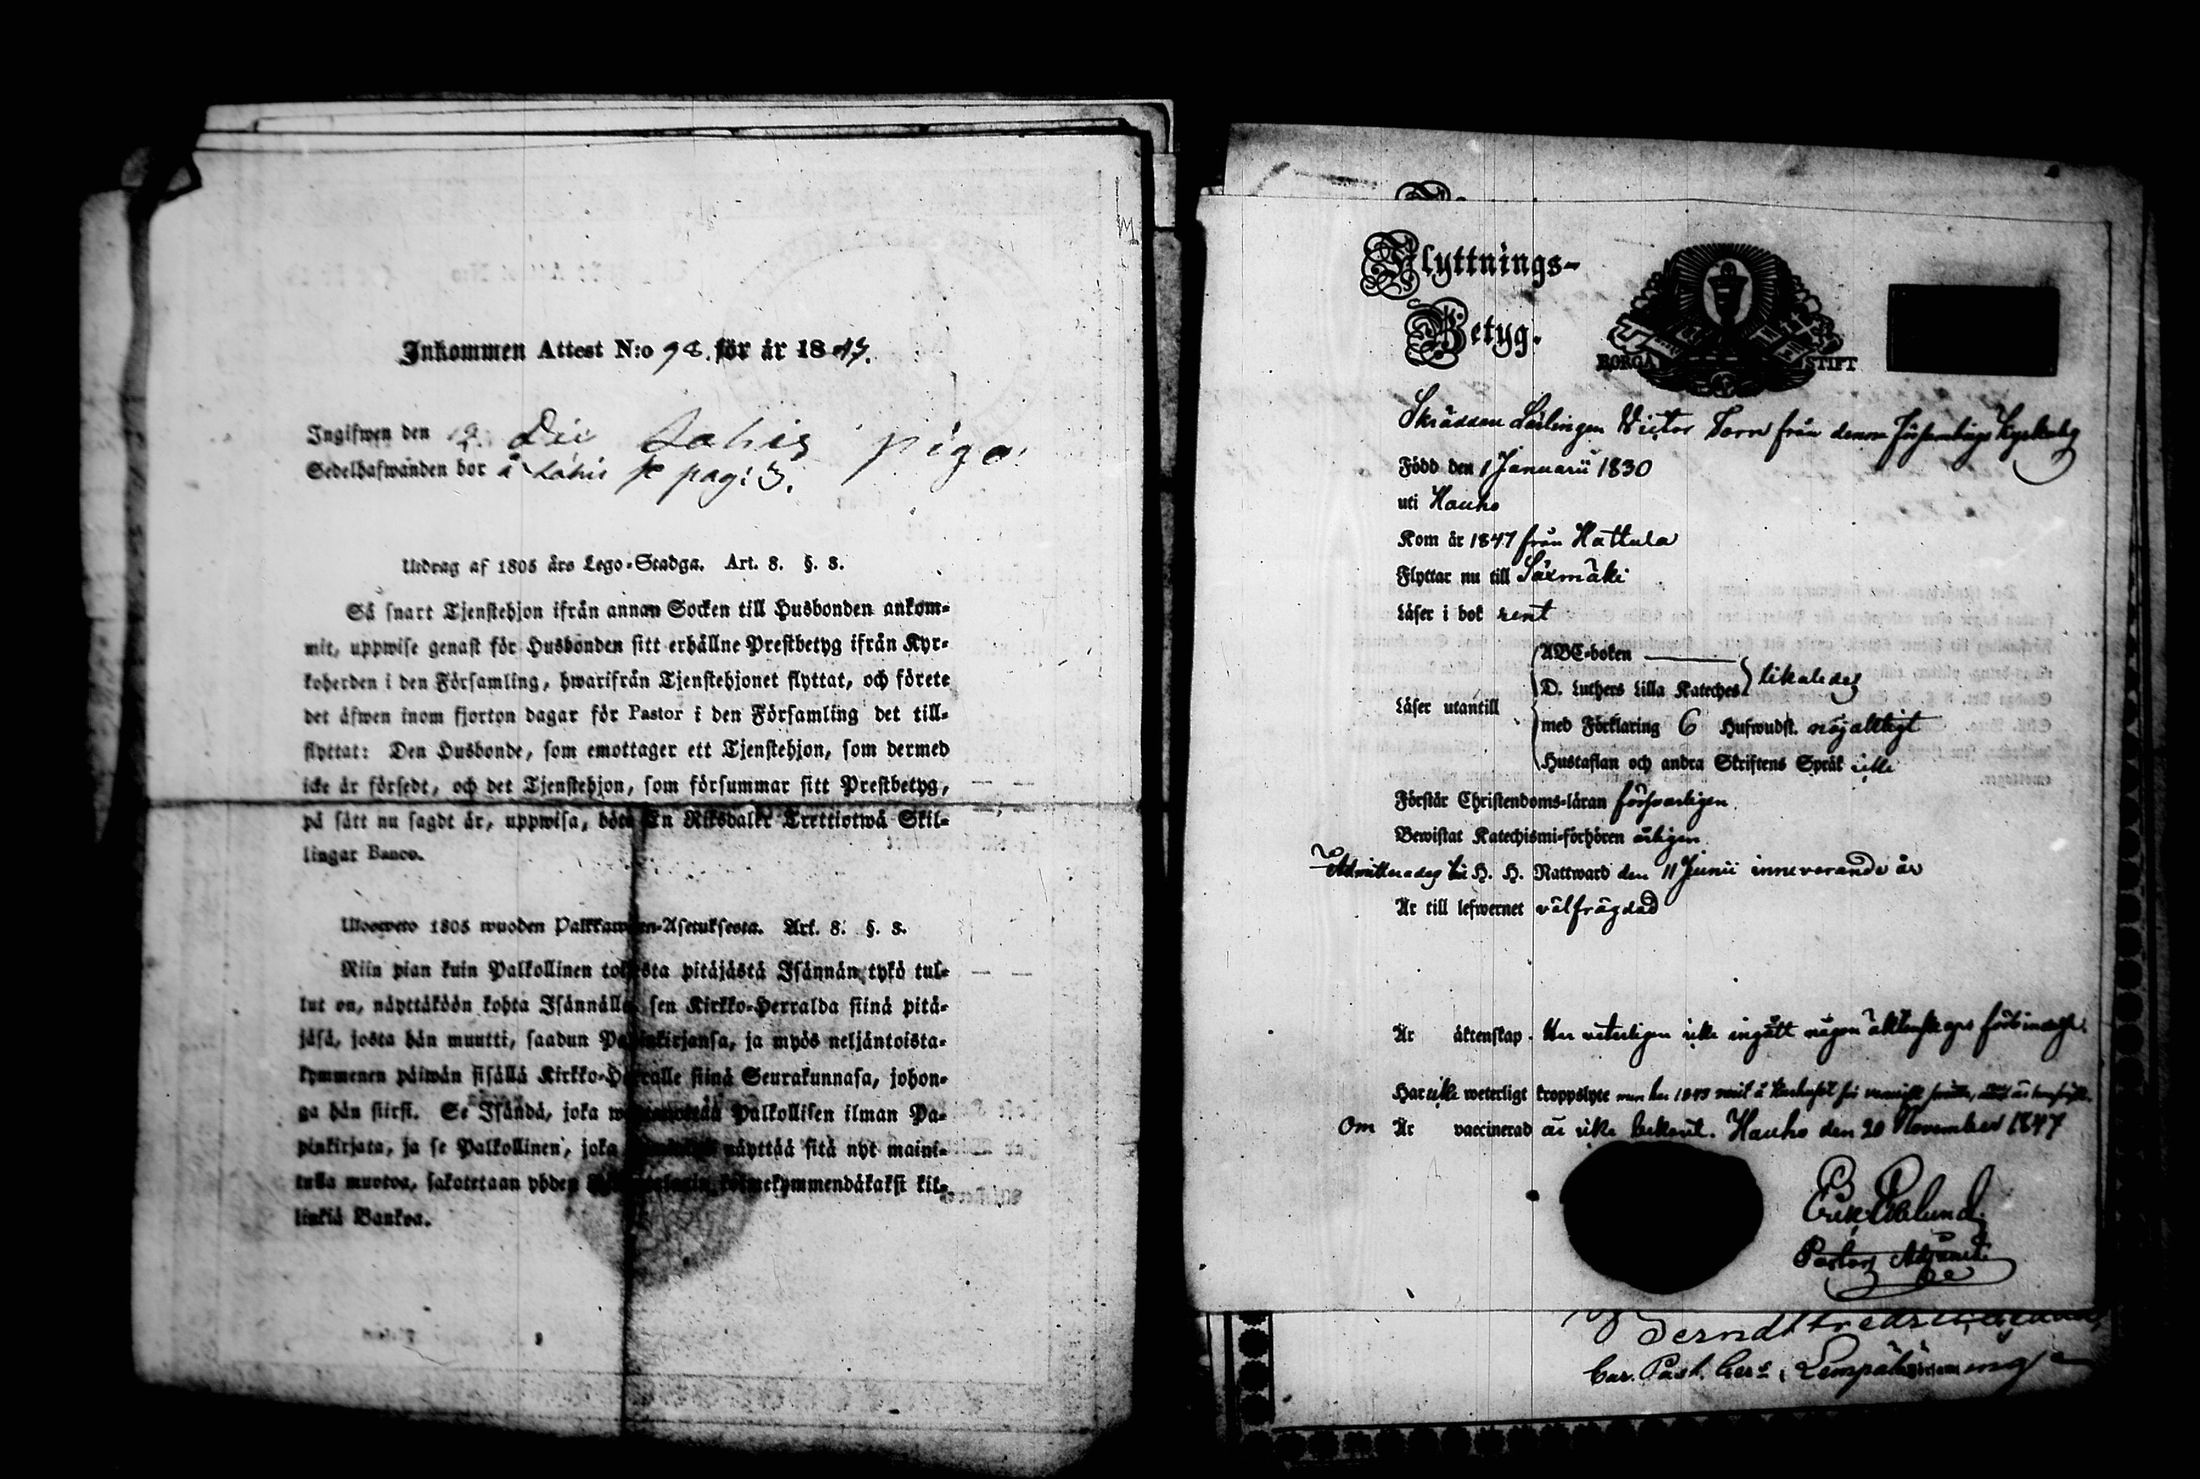 Inkommen Attest N:o 98. för år 1847.
Ingifwen den 19 Dec Lahis piga
Sedelhafwanden bor å Lahis pag: 3.
Utdrag af 1805 års Lego-Stadga. Art. 8. §. 8.
Så snart Tjenstehjon ifrån annan Socken till Husbonden ankom-
mit, uppwise genast för Husbonden sitt erhållne Prestbetyg ifrån Kyr-
koherden i den Församling, hwarifrån Tjenstehjonet flyttat, och förete
det äfwen inom fjorton dagar för Pastor i den Församling det till-
flyttat: Den Husbonde, som emottager ett Tjenstehjon, som dermed
icke är försedt, och det Tjenstehjon, som försummar sitt Prestbetyg,
på sätt nu sagdt är, uppwisa, böte En Riksdaler Trettiotwå Skil-
lingar Banco.
Ulosweto 1805 wuoden Palkkawäen-Asetuksesta. Art. 8. §. 8.
Niin pian kuin Palkollinen toisesta pitäjästä Isännän tykö tul-
lut on, näyttäköön kohta Isännälle sen Kirkko-Herralda siinä pitä-
jäsä, josta hän muutti, saadun Papinkirjansa, ja myös neljäntoista-
kymmenen päiwän sisällä Kirkko-Herralle siinä Seurakunnasa, johon-
ga hän siirsi. Se Isändä, joka Palkollisen ilman Pa-
pinkirjata, ja se Palkollinen, joka näyttää sitä nyt maini-
tulla muotoa, sakotetaan yhden kolmekymmendäkaksi kil-
linkiä Bankoa.
Flyttnings-
Betyg.
BORGÅ STIFT
Skräddare Lärlingen Victor Torn från denne Församlings Kyrkoby
Född den 1 Januarii 1830
uti Hauho
Kom år 1847 från Hattula
Flyttar nu till Säxmäki
Läser i bok rent
Läser utantill
ABC-boken
D. Luthers Lilla Kateches likaledes
med Förklaring 6 Hufwudst. nöjaktigt
Hustaflan och andra Skriftens Språk icke
Förstår Christendoms-läran försvarligen
Bewistat Katechismi-förhören årligen
Admitterades till H. H. Nattward den 11 Junii innevarande år
Är till lefwernet välfrägdad
Är äktenskap. Har veterligen icke ingått någon äktenskaps förbindelse.
Har icke weterligt kroppslyte men har 1843
Om Är vaccinerad är icke bekant. Hauho den 20 November 1847
Erik Eklund
Pastors Adjunct
Berndt Fredric
Cur. Past. Lempälä